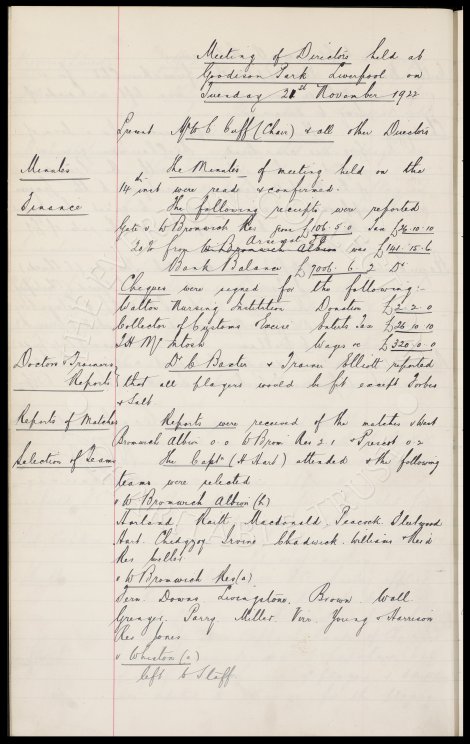 Meeting of Directors held at
Goodison Park Liverpool on
Tuesday 21st November 1922
Present Mr W C Cuff (Chair) & all other Directors
Minutes
The Minutes of meeting held on the
14th inst were read & confirmed.
Finance
The following receipts were reported
Gate v. W Bromwich Res gross £106.5.0 Tax £26.10.10
20% from W Bromwich Albion Arsenal was £141.15.6
Bank Balance £7006.6.2 Dr
Cheques were signed for the following:-
Walton Nursing Institution Donation £2.2.0
Collector of Customs Excise Ents Tax £26.10.10
T H McIntosh Wages &c £320.0.0
Doctors & Trainers
Reports
Dr C Baxter & Trainer Elliott reported
that all players would be fit except Forbes
& Salt.
Reports of Matches
Reports were received of the matches v West
Bromwich Albion 0.0 W Brom Res 2.1 & Prescot 0.2
Selection of Teams
The Captn (H Hart) attended & the following
teams were selected
v W Bromwich Albion (h)
Harland Raitt Macdonald. Peacock. Fleetwood
Hart. Chedgzoy Irvine Chadwick. William & Reid
Res Miller
v W Bromwich Res (a)
Fern. Downs. Livingstone. Brown. Wall
Grenyer. Parry. Miller. Virr. Young & Harrison
Res Jones
v Whiston (a)
left to Staff